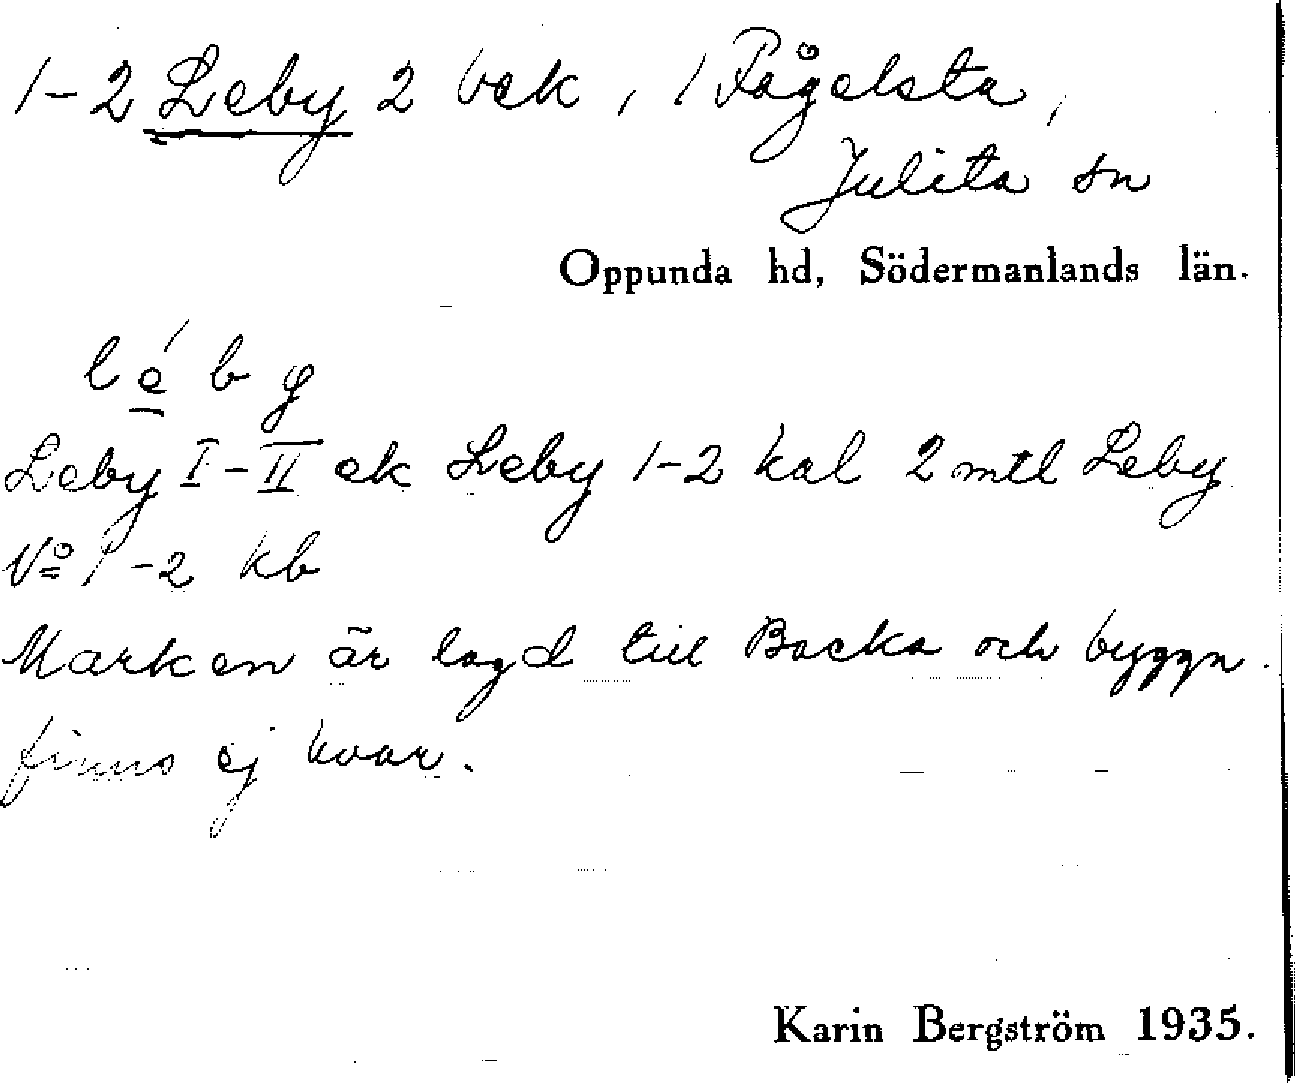 1-2 Leby 2 bek, / Fågelsta,
Julita sn
Oppunda hd, Södermanlands län.
l é b y
Leby I-II ek Leby 1-2 kal 2 mtl Leby
No 1-2 kb
Marken är lagd till Backa och byggn.
finns ej kvar.
Karin Bergström 1935.